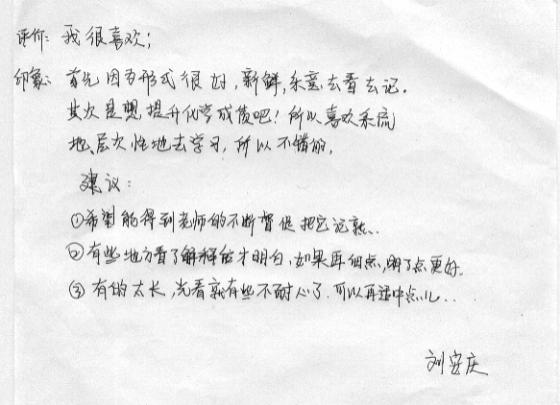 评价: 我很喜欢;
印象: 首先因为形式很好,新鲜,乐意去看去记.
其次是想提升化学成绩吧!所以喜欢系流
地、层次性地去学习,所以不错的.
建议:
①希望能得到老师的不断督促把它记熟..
②有些地方看了解释后才明白,如果再细点,明了点更好.
③有的太长,光看就有些不耐心了.可以再适中点儿..
刘安庆